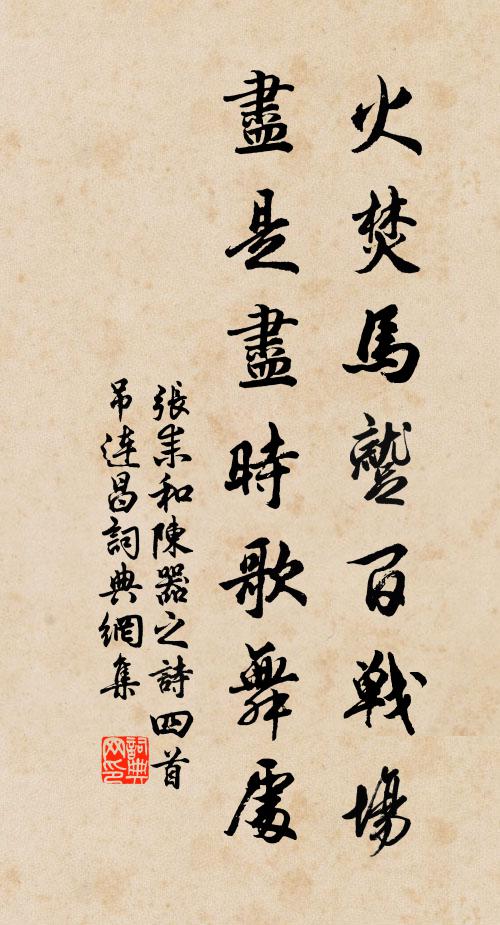 火焚馬蹵百戦場
盡是盡時歌舞處
張耒和陳器之詩四首
吊連昌詞典網集
詞典
网印